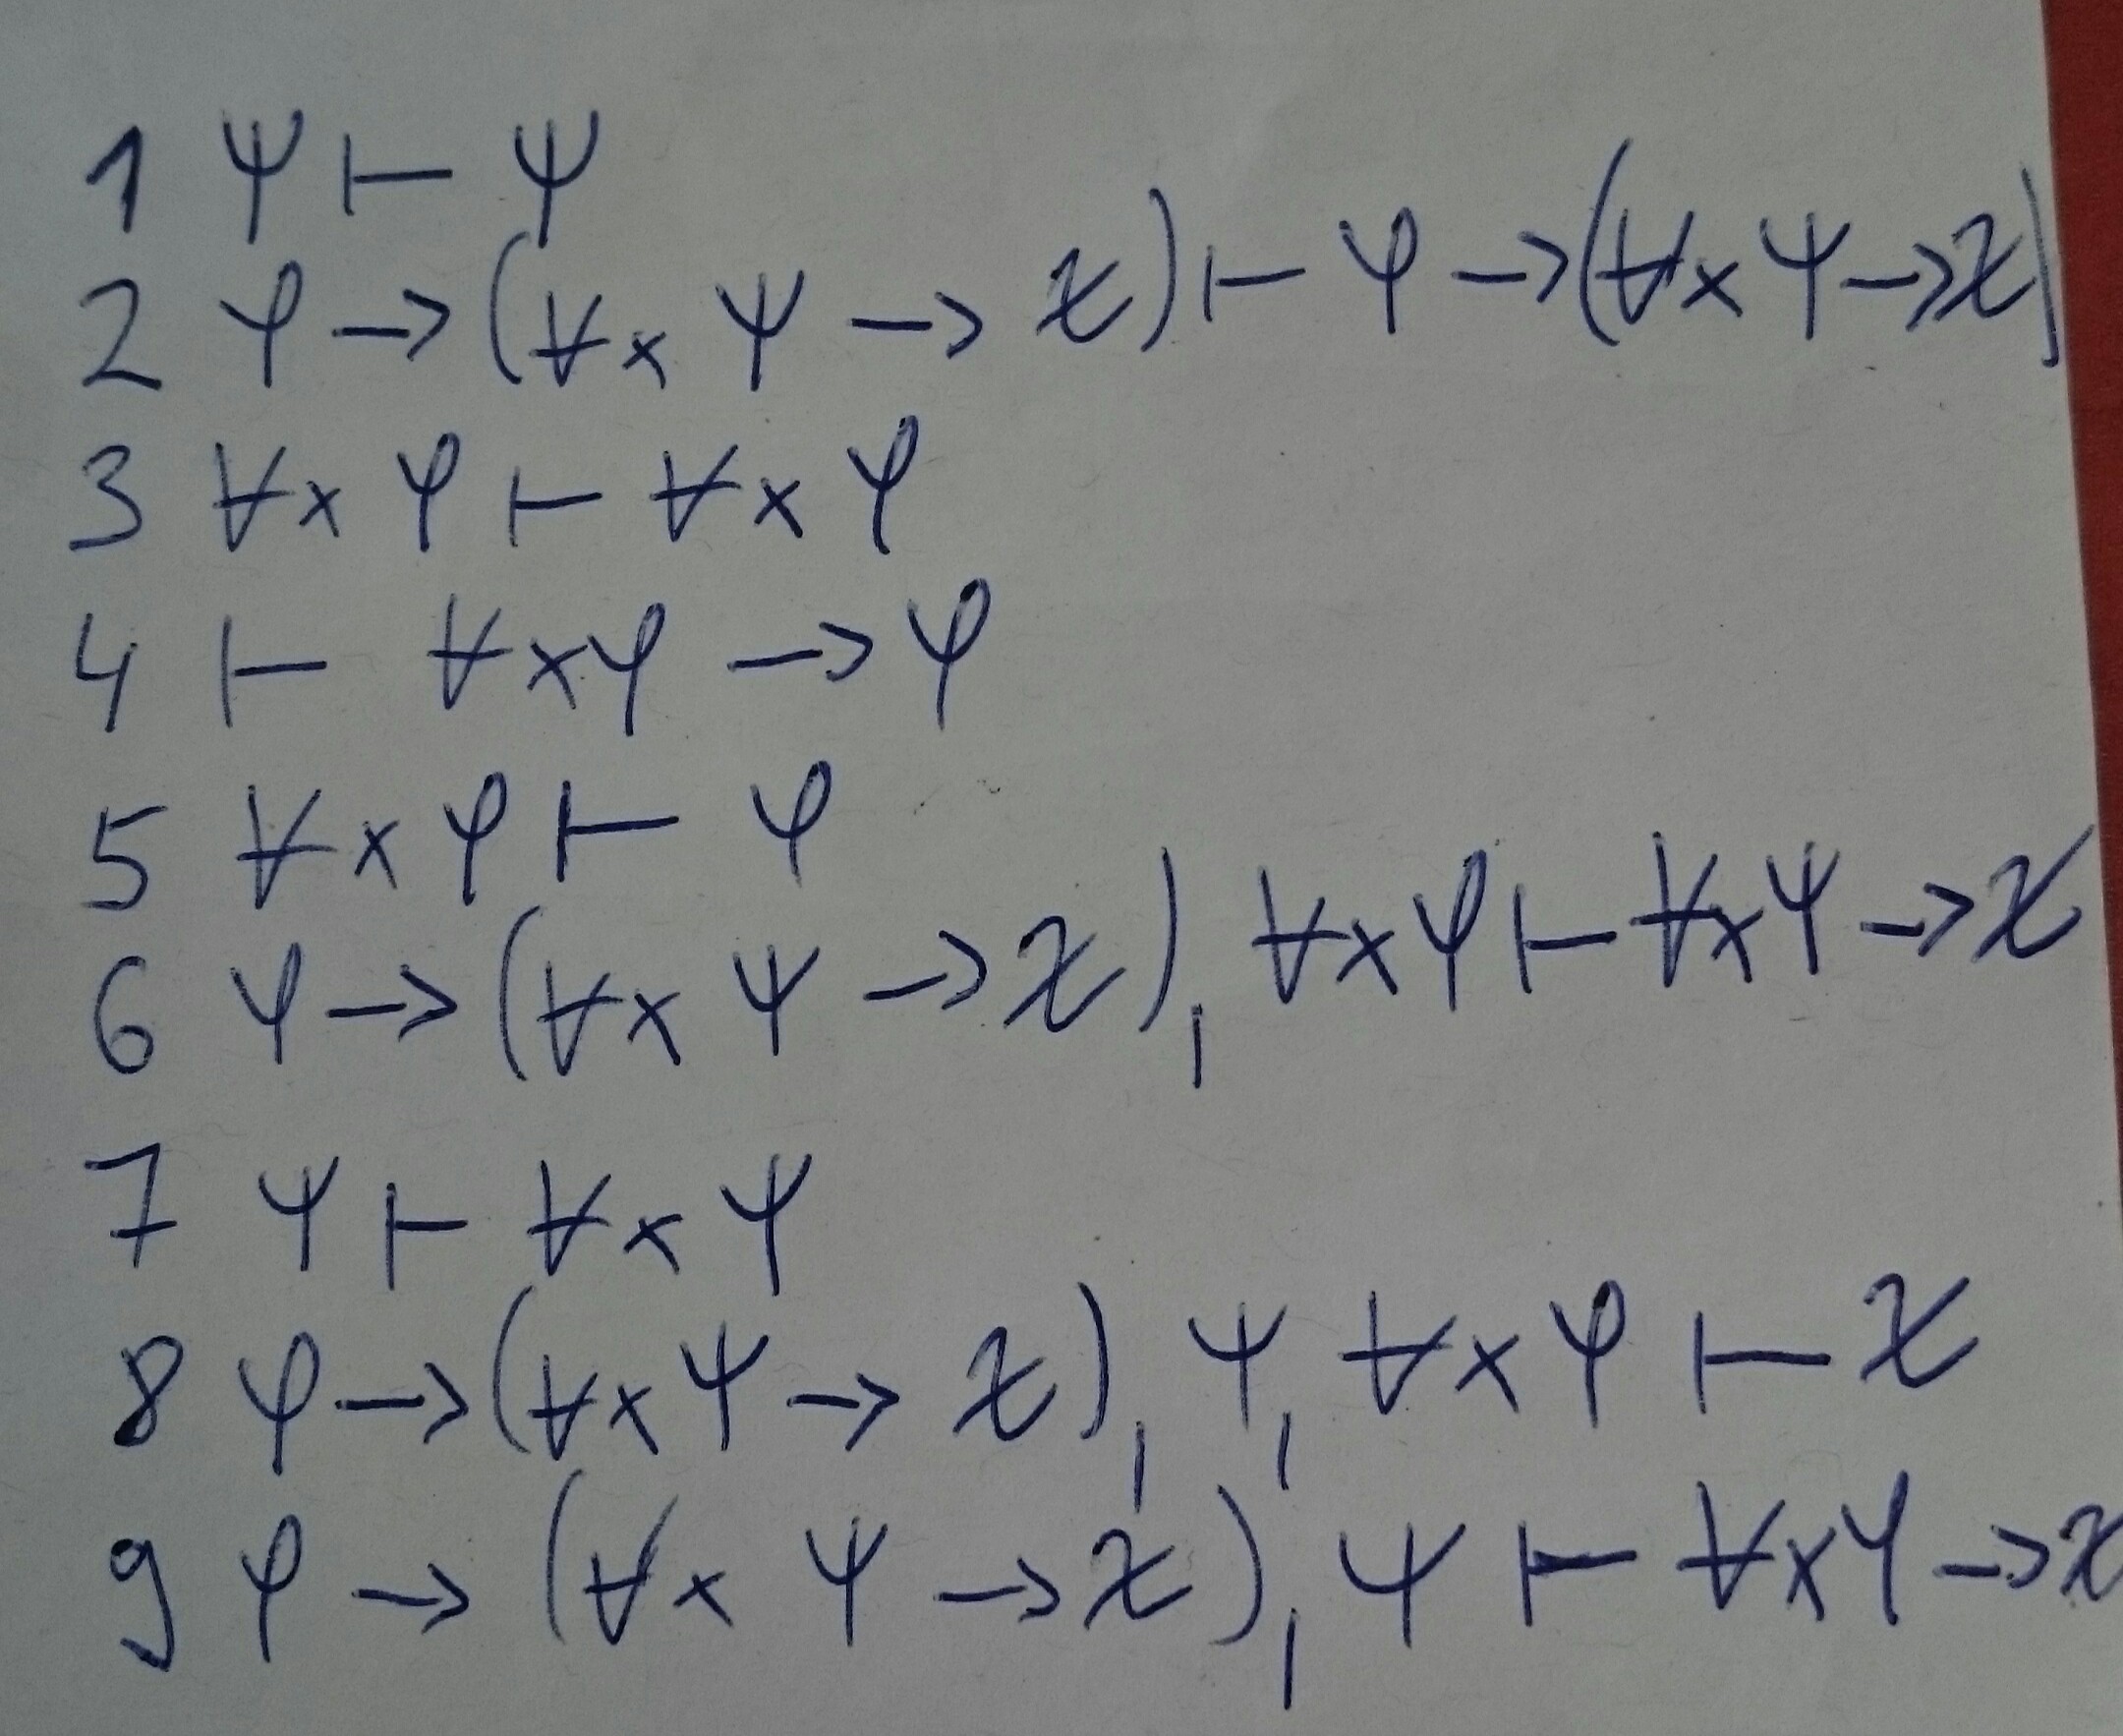 1 ψ ⊢ ψ
2 φ → (∀x ψ → χ) ⊢ φ → (∀x ψ → χ)
3 ∀x φ ⊢ ∀x φ
4 ⊢ ∀xφ → φ
5 ∀x φ ⊢ φ
6 φ → (∀x ψ → χ), ∀xφ ⊢ ∀xψ → χ
7 ψ ⊢ ∀x ψ
8 φ → (∀xψ → χ), ψ, ∀xφ ⊢ χ
9 φ → (∀x ψ → χ), ψ ⊢ ∀xφ → χ